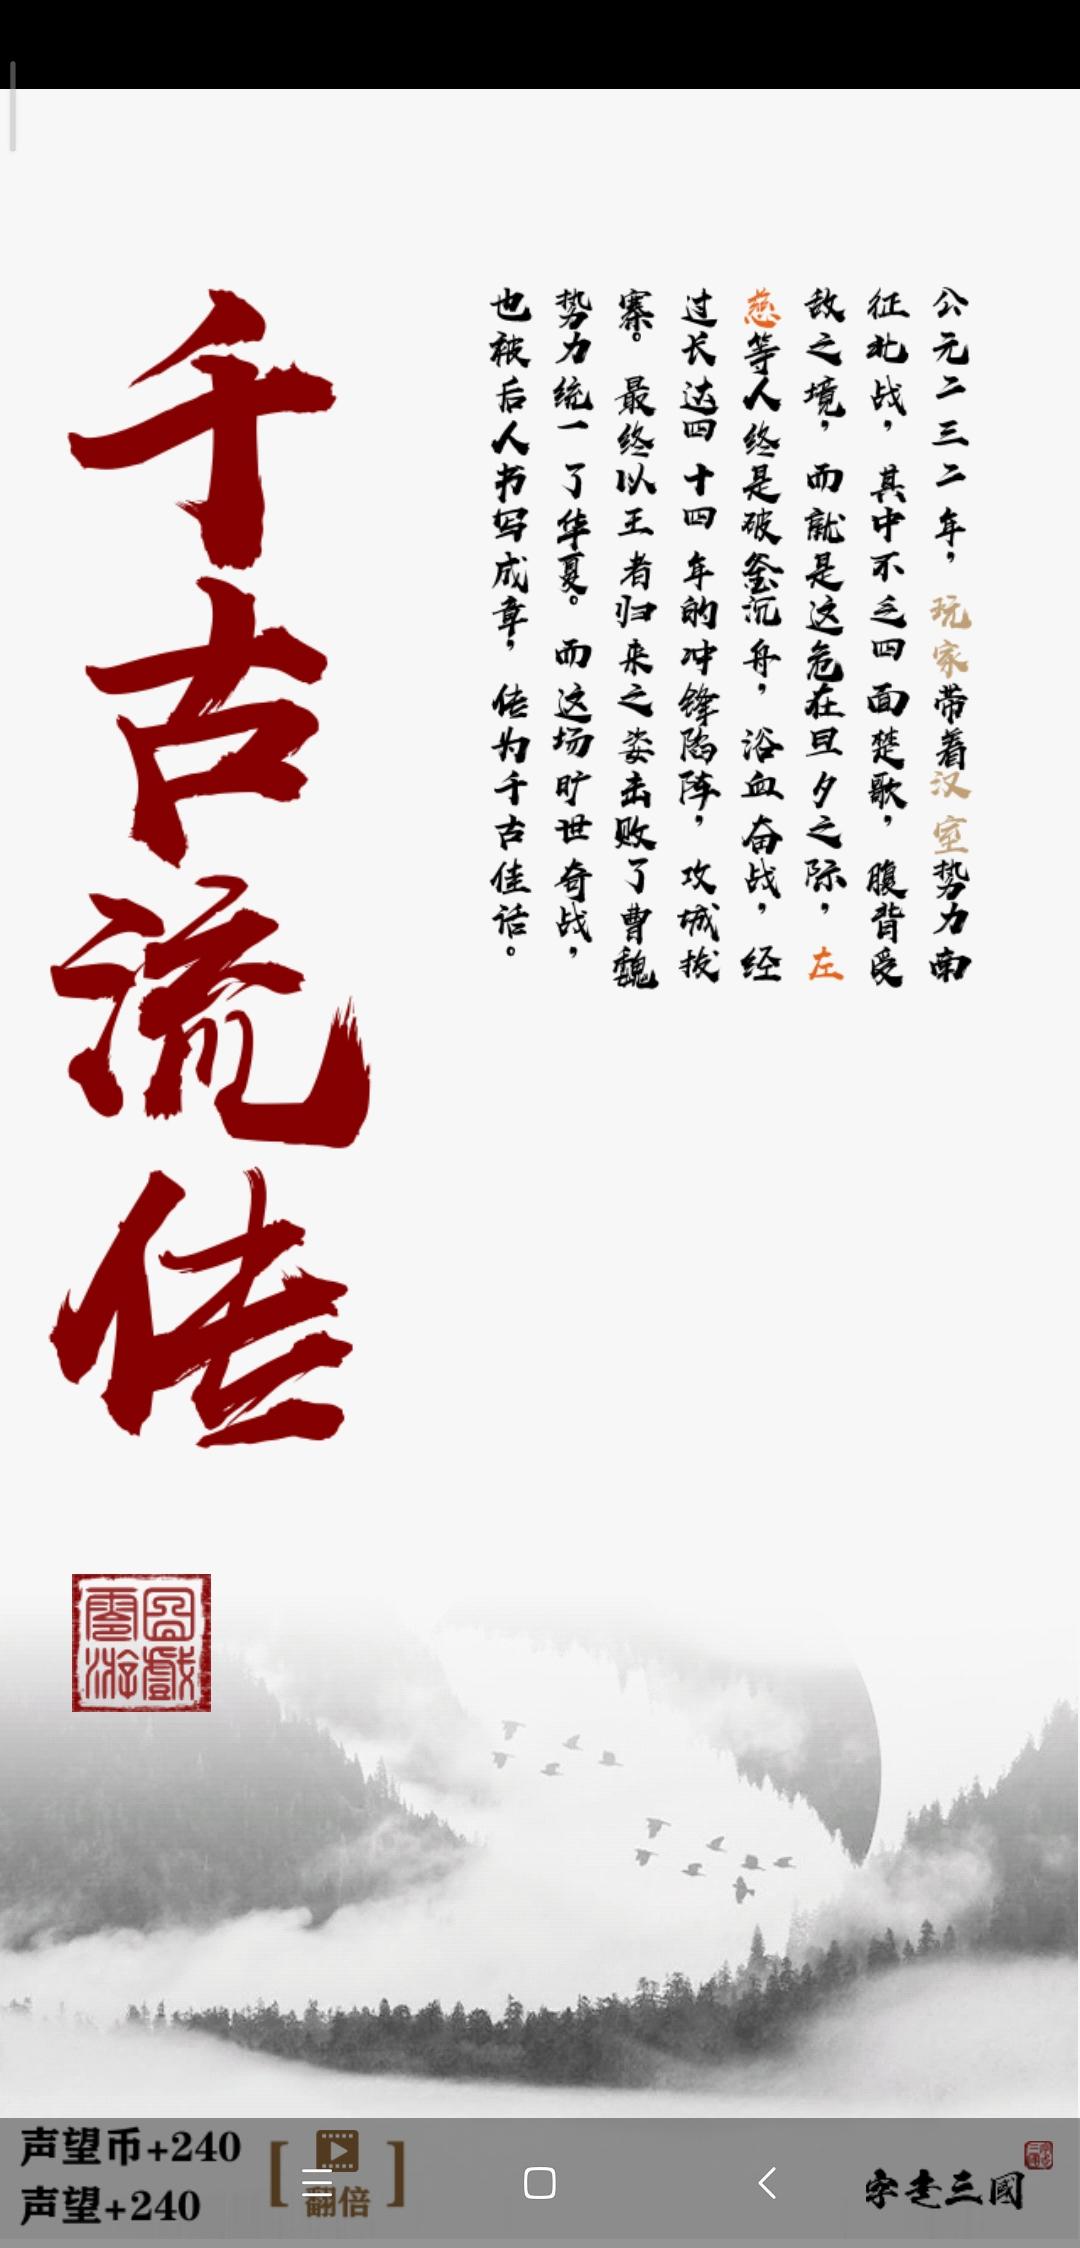 公元二三二年，玩家带着汉室势力南
征北战，其中不乏四面楚歌，腹背受
敌之境，而就是这危在旦夕之际，左
慈等人终是破釜沉舟，浴血奋战，经
过长达四十四年的冲锋陷阵，攻城拔
寨。最终以王者归来之姿击败了曹魏
势力统一了华夏。而这场旷世奇战，
也被后人书写成章，传为千古佳话。
千古流传
雲圖游戲
声望币+240
声望+240
[翻倍]
字走三國